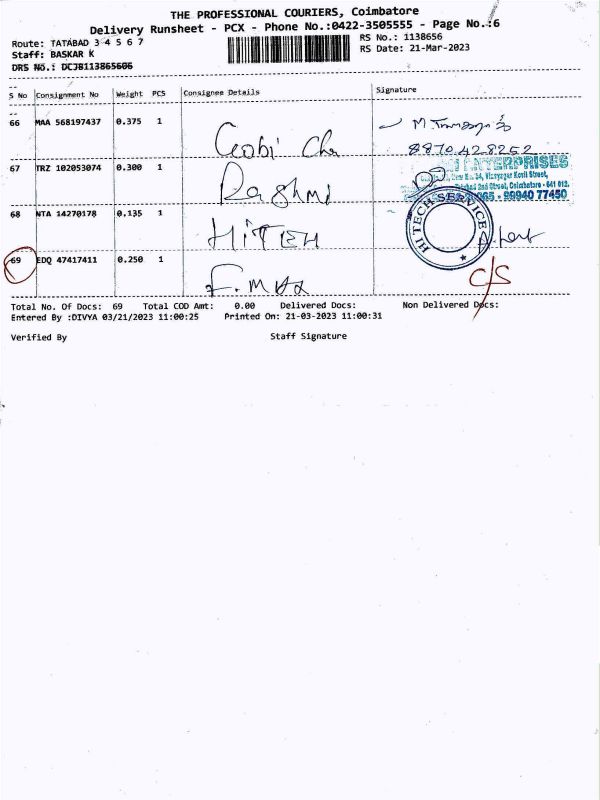 THE PROFESSIONAL COURIERS, Coimbatore
Delivery Runsheet - PCX - Phone No.:0422-3505555 - Page No.:6
Route: TATABAD 3 4 5 6 7
RS No.: 1138656
Staff: BASKAR K
RS Date: 21-Mar-2023
DRS No.: DCJB113865606
S No Consignment No Weight PCS Consignee Details Signature
66 MAA 568197437 0.375 1 Gobi
8870428252
67 TRZ 102053074 0.300 1 Rashmi
ENTERPRISES
Street,
2nd Street, Coimbatore - 641 012.
99940 77450
68 NTA 14270178 0.135 1 HiTEH
HI TECH SERVICE
69 EDQ 47417411 0.250 1
C/S
Total No. Of Docs: 69 Total COD Amt: 0.00 Delivered Docs: Non Delivered Docs:
Entered By :DIVYA 03/21/2023 11:00:25 Printed On: 21-03-2023 11:00:31
Verified By Staff Signature